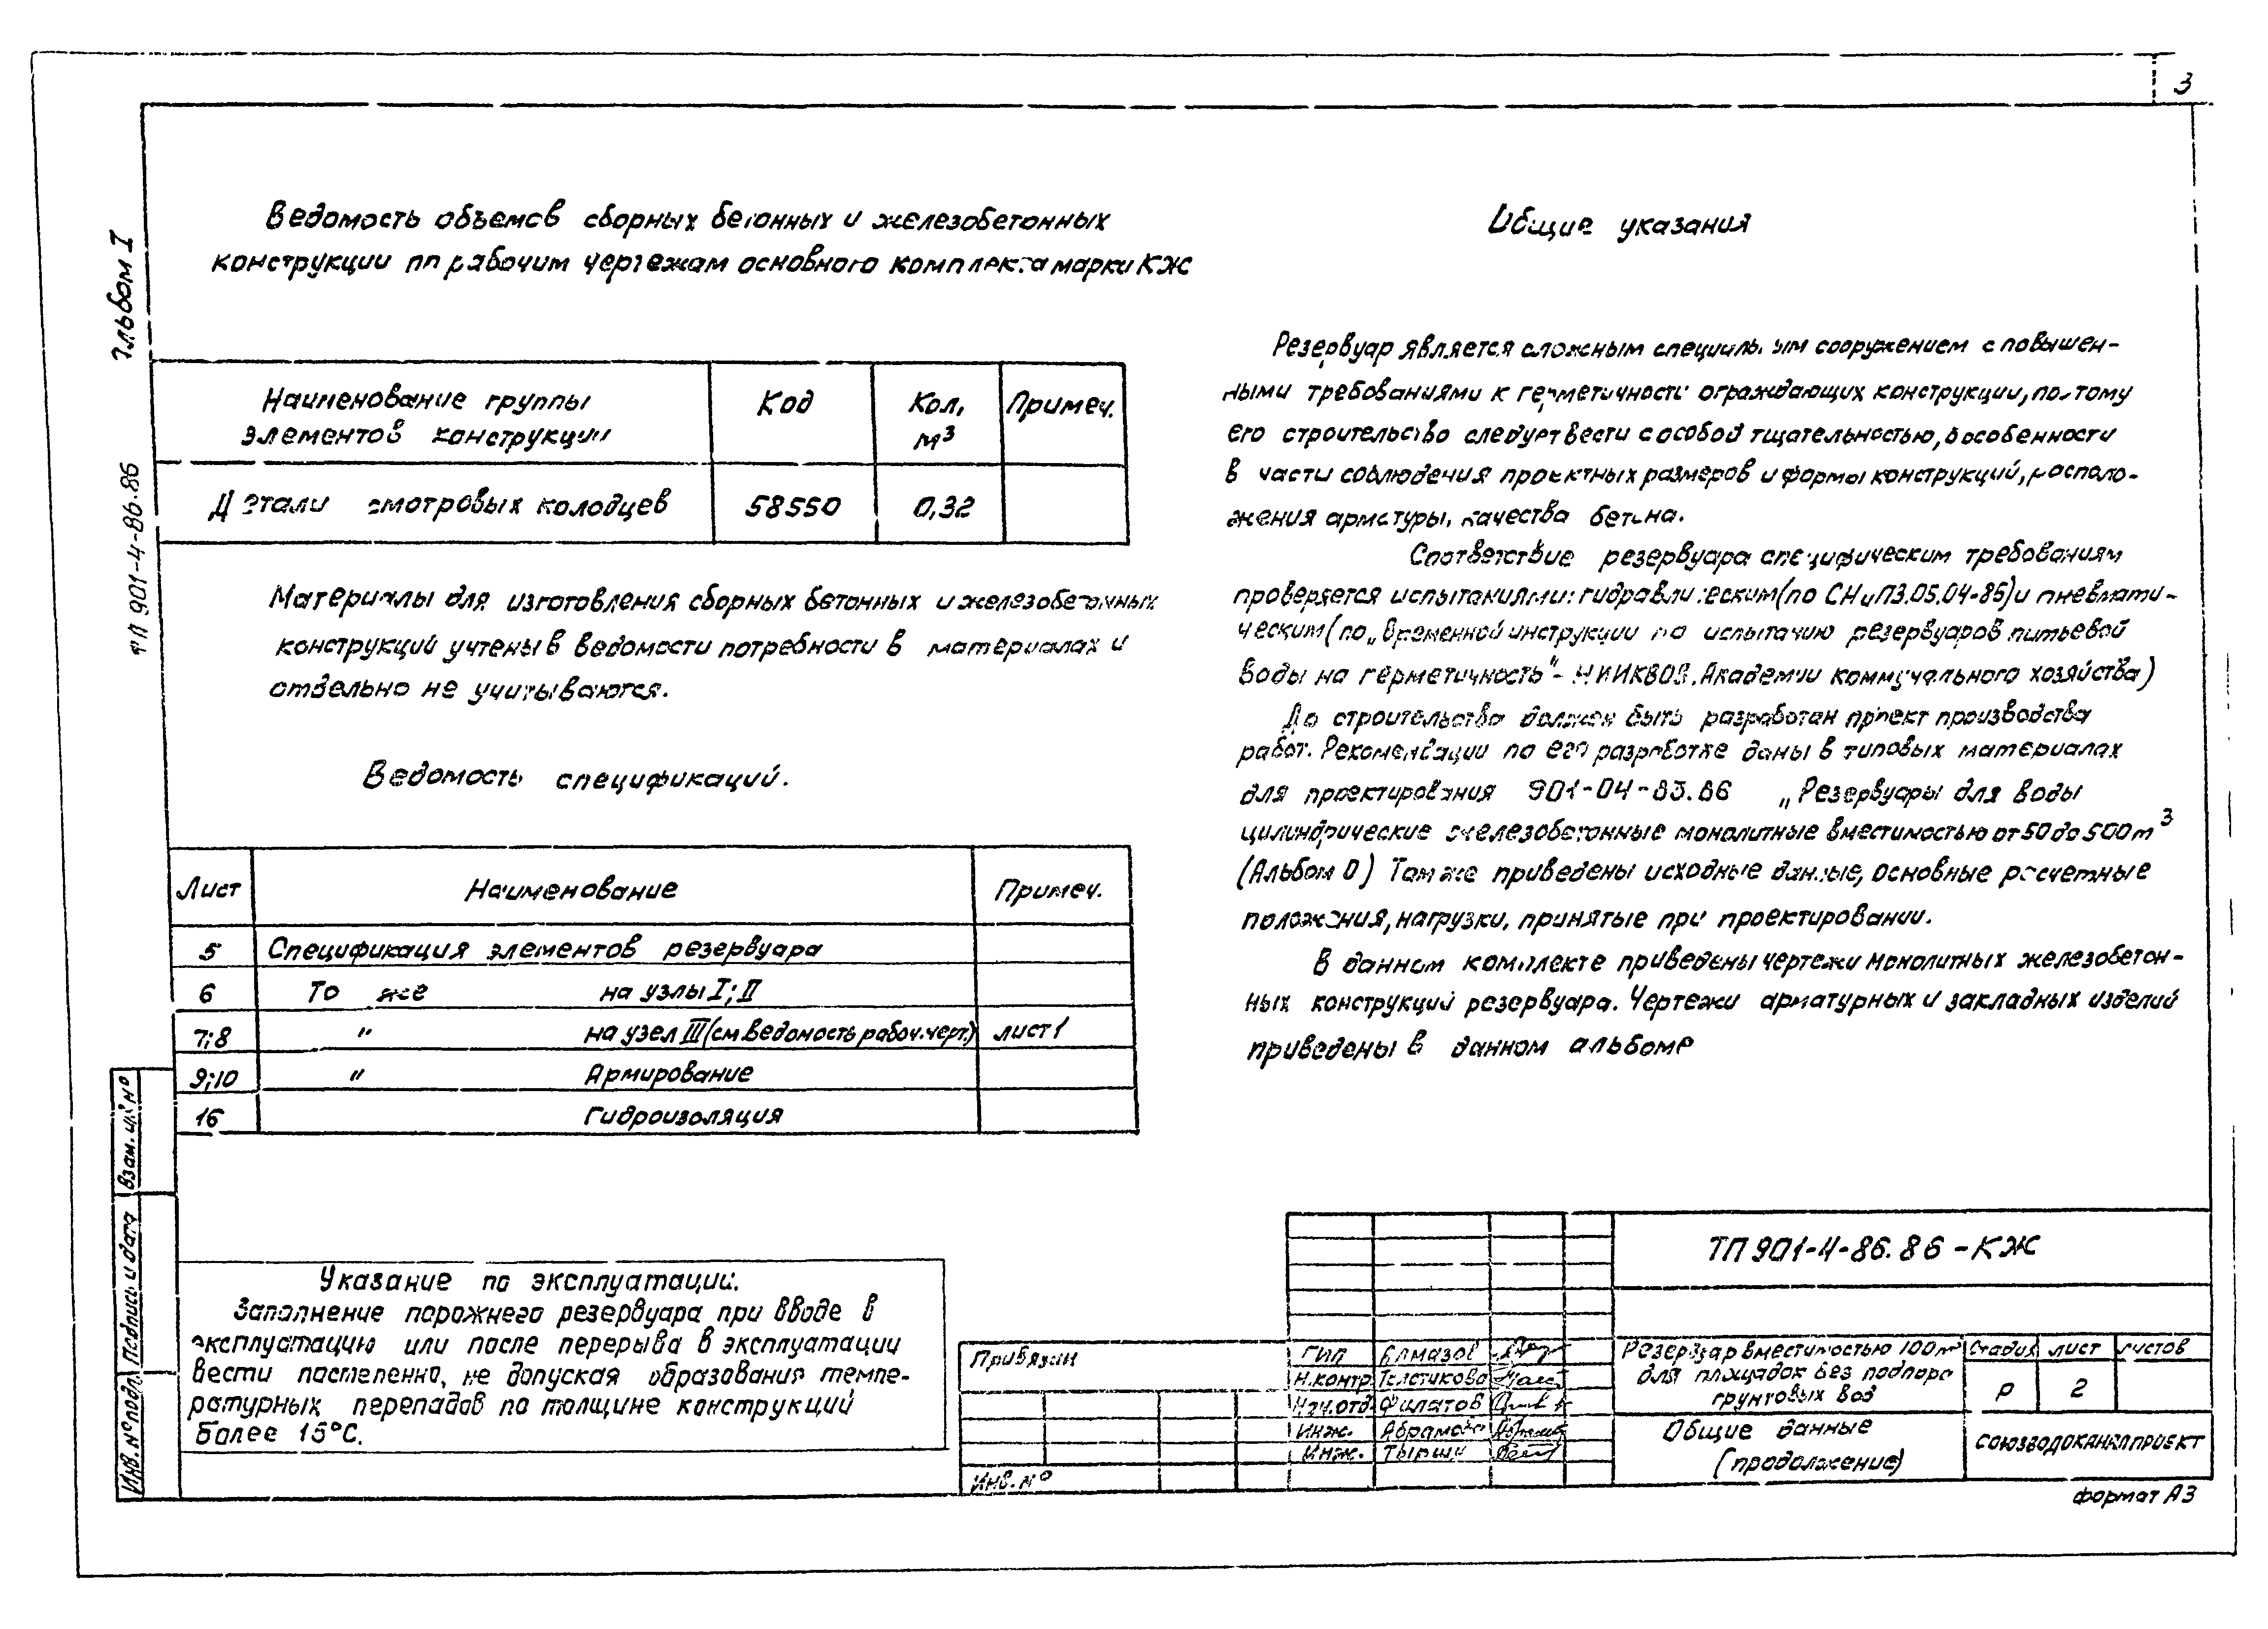 3
Альбом I
ТП 901-4-86.86
Ведомость объемов сборных бетонных и железобетонных
конструкции по рабочим чертежам основного комплекта марки КЖ
Наименование группы элементов конструкции
Код
Кол, м³
Примеч.
Детали смотровых колодцев
58550
0,32
Материалы для изготовления сборных бетонных и железобетонных
конструкций учтены в ведомости потребности в материалах и
отдельно не учитываются.
Ведомость спецификаций.
Лист
Наименование
Примеч.
5 Спецификация элементов резервуара
6 То же на узлы I; II
7;8 " на узел III (см ведомость рабоч.черт.) лист 1
9;10 " Армирование
16 Гидроизоляция
Указание по эксплуатации.
Заполнение порожнего резервуара при вводе в
эксплуатацию или после перерыва в эксплуатации
вести постепенно, не допуская образования темпе-
ратурных перепадов по толщине конструкций
более 15°С.
Общие указания
Резервуар является сложным специальным сооружением с повышен-
ными требованиями к герметичности ограждающих конструкции, поэтому
его строительство следует вести с особой тщательностью, в особенности
в части соблюдения проектных размеров и формы конструкций, располо-
жения арматуры, качества бетона.
Соответствие резервуара специфическим требованиям
проверяется испытаниями: гидравлическим (по СНиП 3.05.04-85) и пневмати-
ческим (по „Временной инструкции по испытанию резервуаров питьевой
воды на герметичность" - НИИКВОВ. Академии коммунального хозяйства)
До строительства должен быть разработан проект производства
работ. Рекомендации по его разработке даны в типовых материалах
для проектирования 901-04-83.86 „Резервуары для воды
цилиндрические железобетонные монолитные вместимостью от 50 до 500 м³
(Альбом 0) Там же приведены исходные данные, основные расчетные
положения, нагрузки, принятые при проектировании.
В данном комплекте приведены чертежи монолитных железобетон-
ных конструкций резервуара. Чертежи арматурных и закладных изделий
приведены в данном альбоме
Взам. инв №
Подпись и дата
Инв. № подл.
Привязан
Инв. №
ГИП Алмазов
Н.контр Толстикова
Нач.отд Филатов
Инж. Абрамова
Инж.
ТП 901-4-86.86 - КЖ
Резервуар вместимостью 100 м³
для площадок без подпора
грунтовых вод
Стадия Лист Листов
Р 2
Общие данные
(продолжение)
СОЮЗВОДОКАНАЛПРОЕКТ
формат А3